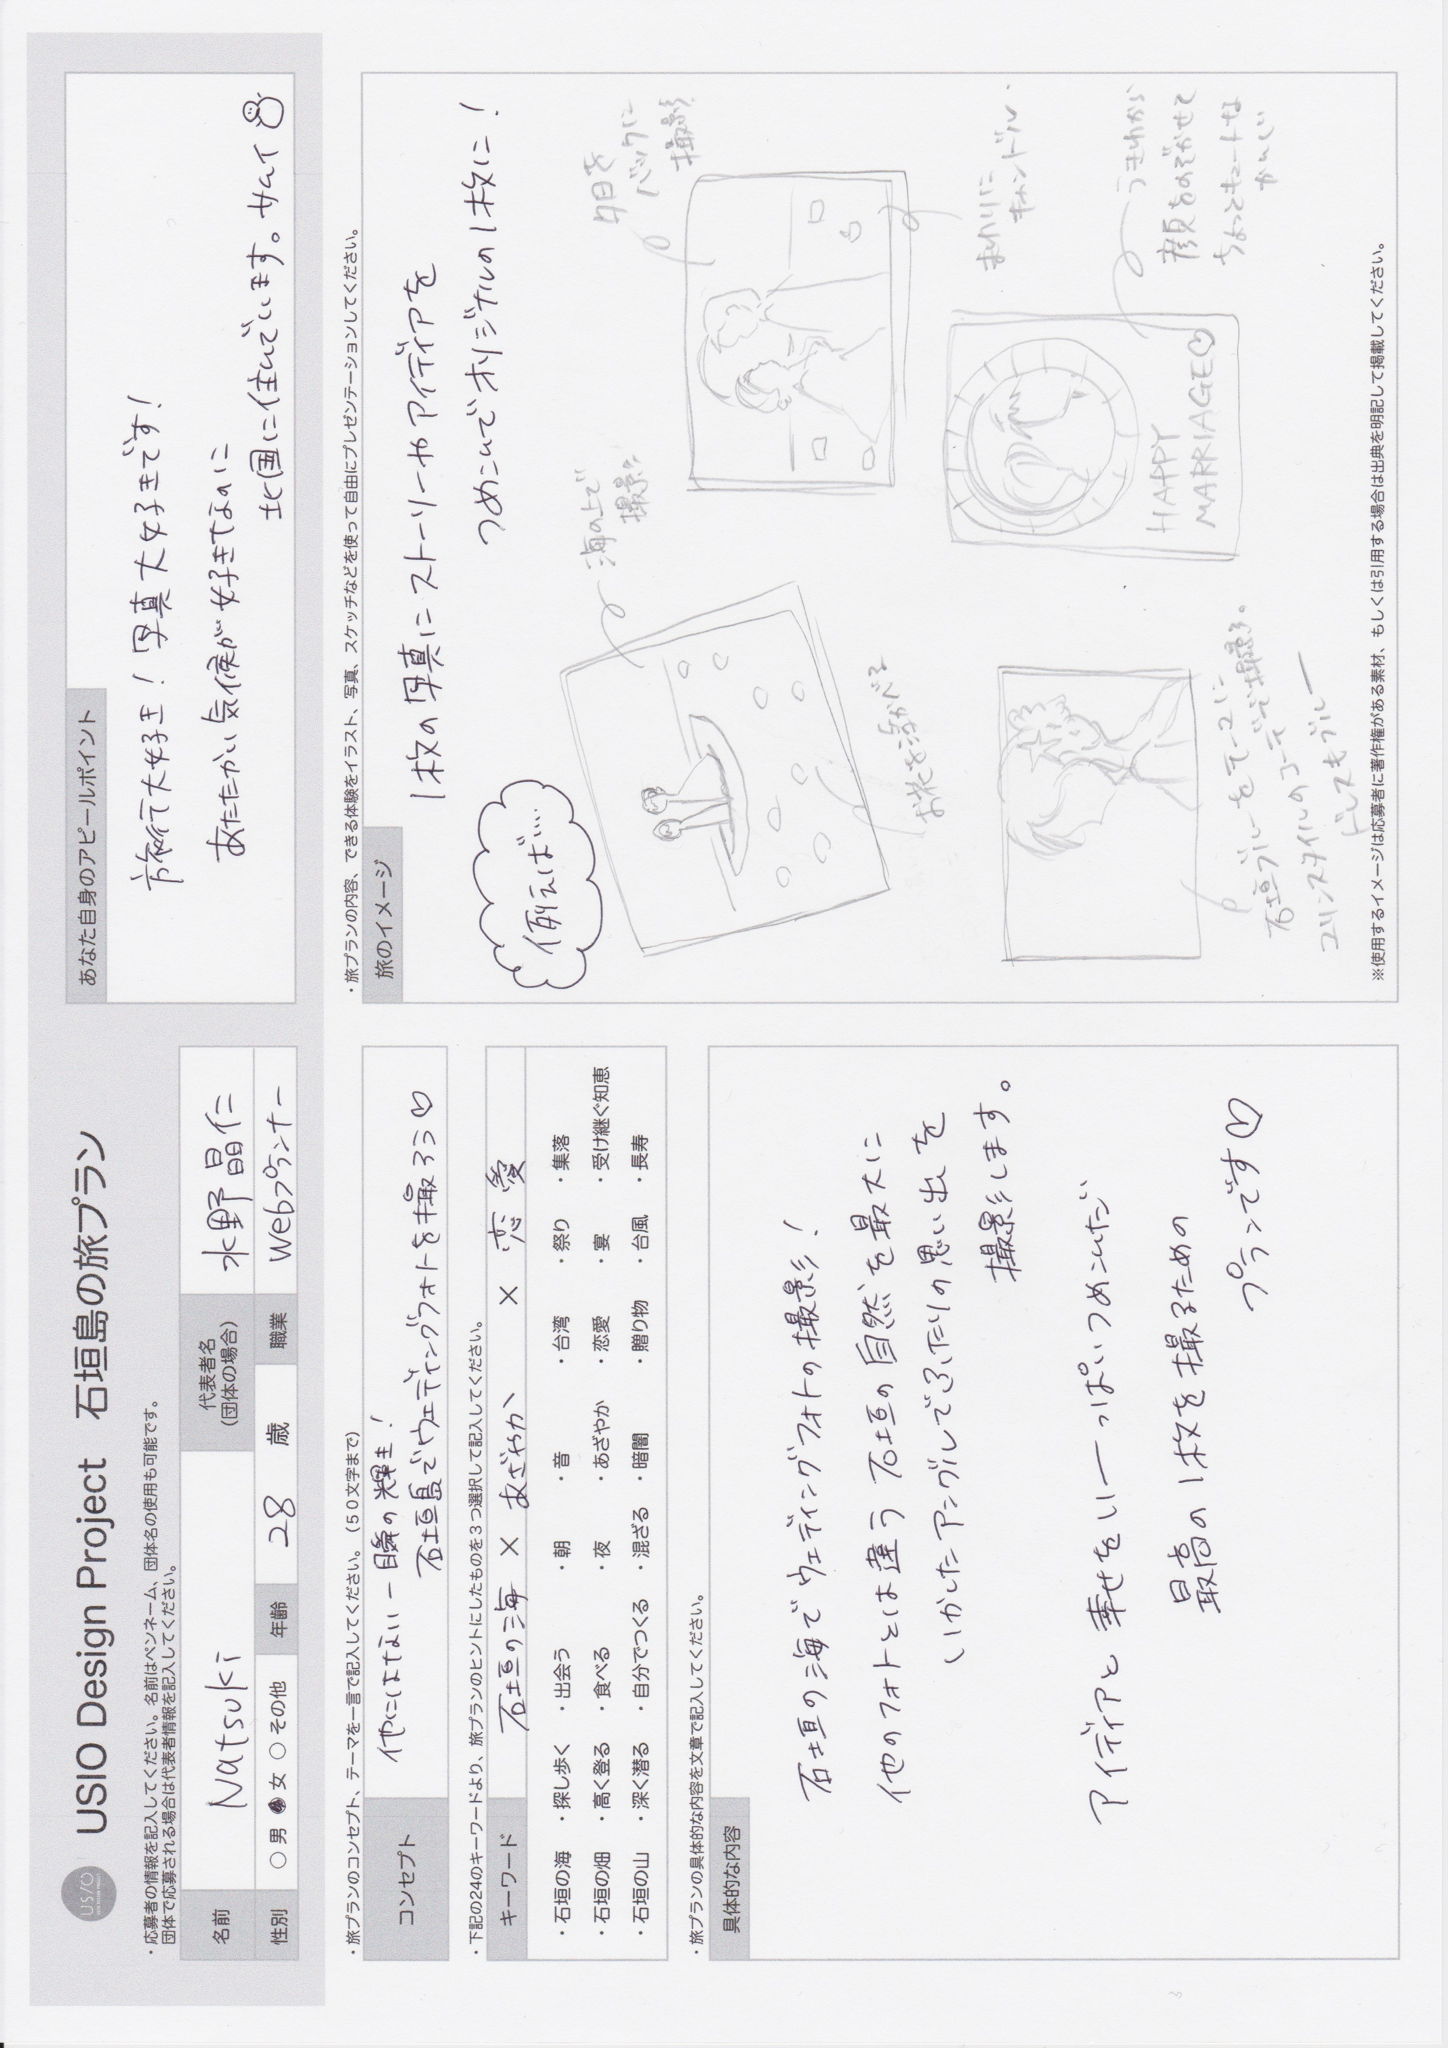 USIO
USIO Design Project 石垣島の旅プラン
・応募者の情報を記入してください。名前はペンネーム、団体名の使用も可能です。
団体で応募される場合は代表者情報を記入してください。
名前
Natsuki
代表者名
(団体の場合)
水野晶仁
性別
○ 男 ● 女 ○ その他
年齢
28 歳
職業
Webプランナー
あなた自身のアピールポイント
旅行大好き！写真大好きです！
あたたかい気候が好きなのに
北国に住んでいます。サムイ
・旅プランのコンセプト、テーマを一言で記入してください。（５０文字まで）
コンセプト
他にはない一瞬の輝き！
石垣島でウェディングフォトを撮ろう♡
・下記の24のキーワードより、旅プランのヒントにしたものを３つ選択して記入してください。
キーワード
石垣の海 × あざやか × 恋愛
・石垣の海 ・探し歩く ・出会う ・朝 ・音 ・台湾 ・祭り ・集落
・石垣の畑 ・高く登る ・食べる ・夜 ・あざやか ・恋愛 ・宴 ・受け継ぐ知恵
・石垣の山 ・深く潜る ・自分でつくる ・混ざる ・暗闇 ・贈り物 ・台風 ・長寿
・旅プランの具体的な内容を文章で記入してください。
具体的な内容
石垣の海でウェディングフォトの撮影！
他のフォトとは違う石垣の自然を最大に
いかしたアングルでふたりの思い出を
撮影します。
アイディアと幸せをいーっぱいつめこんだ
最高の1枚を撮るための
プランです♡
・旅プランの内容、できる体験をイラスト、写真、スケッチなどを使って自由にプレゼンテーションしてください。
旅のイメージ
1枚の写真にストーリーやアイディアを
つめこんでオリジナルの1枚に！
例えば…
海の上で
撮影
お花を浮かべる
夕日を
バックに
撮影
まわりに
キャンドル
石垣ブルーをテーマに
マリンスタイルのコーデで撮影。
ドレスもブルー
HAPPY
MARRIAGE♡
うきわから
顔をのぞかせて
ちょっとキュートな
かんじ
※使用するイメージは応募者に著作権がある素材、もしくは引用する場合は出典を明記して掲載してください。